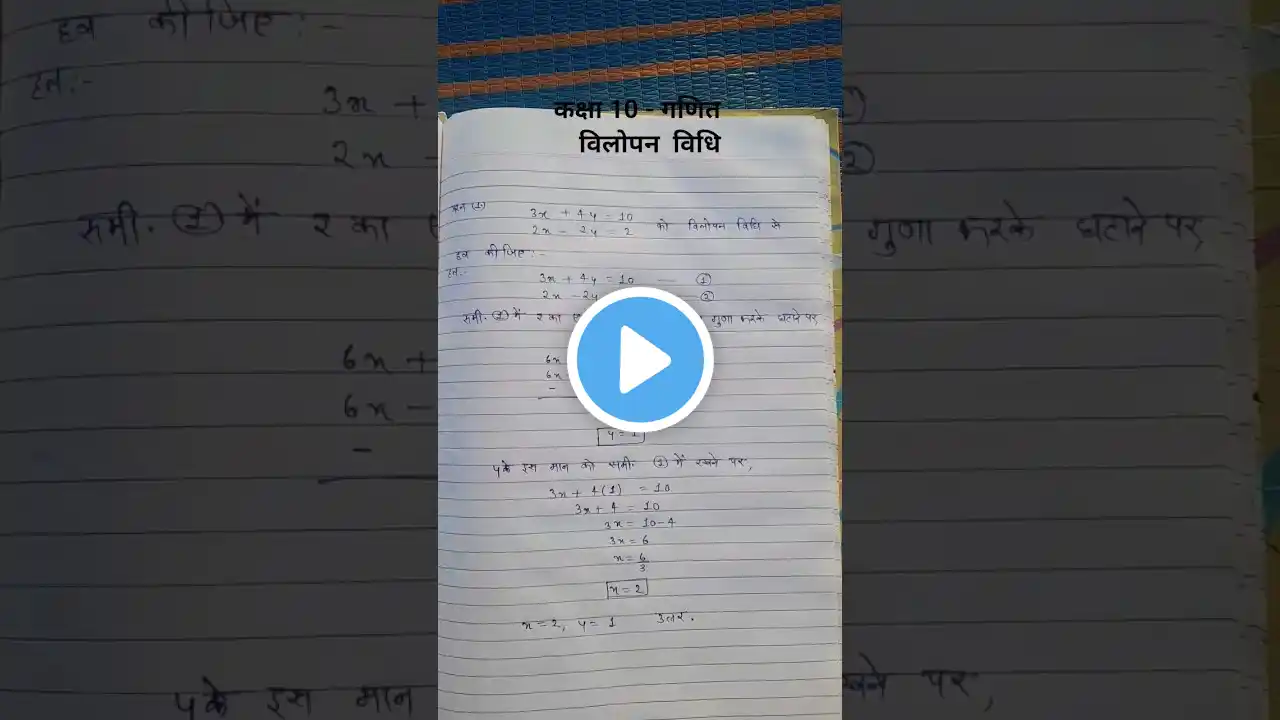 कक्षा 10 - गणित
विलोपन विधि
प्रश्न (1) 3x + 4y = 10
2x - 2y = 2 को विलोपन विधि से
हल कीजिए :-
हल:-
3x + 4y = 10 ①
2x - 2y ②
समी. ② में x का गुणा करके घटाने पर,
6x
6x
-
y = 1
y के इस मान को समी. ① में रखने पर,
3x + 4(1) = 10
3x + 4 = 10
3x = 10-4
3x = 6
x = 6/3
x = 2
x = 2, y = 1 उत्तर.